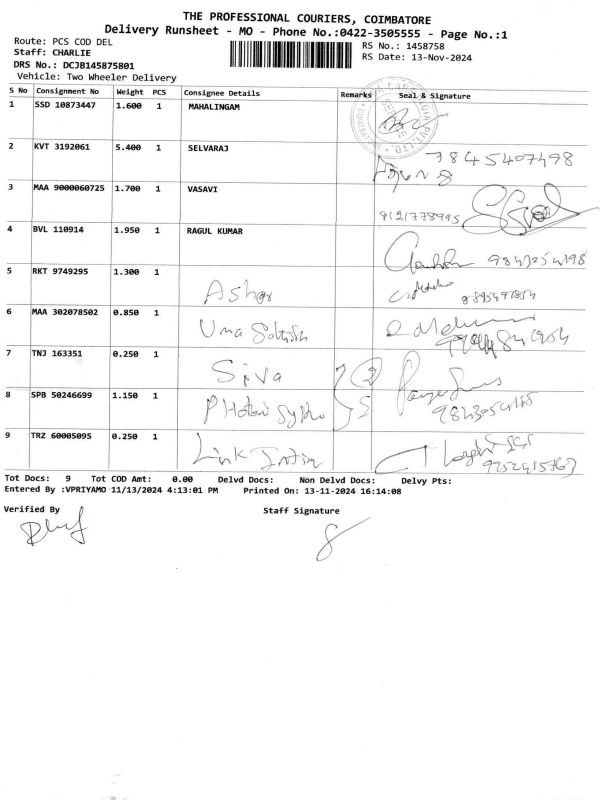 THE PROFESSIONAL COURIERS, COIMBATORE
Delivery Runsheet - MO - Phone No.:0422-3505555 - Page No.:1
Route: PCS COD DEL
RS No.: 1458758
Staff: CHARLIE
RS Date: 13-Nov-2024
DRS No.: DCJB145875801
Vehicle: Two Wheeler Delivery
S No Consignment No Weight PCS Consignee Details Remarks Seal & Signature
1 SSD 10873447 1.600 1 MAHALINGAM
2 KVT 3192061 5.400 1 SELVARAJ
7845407498
3 MAA 9000060725 1.700 1 VASAVI
9121778995
4 BVL 110914 1.950 1 RAGUL KUMAR
5 RKT 9749295 1.300 1
6 MAA 302078502 0.850 1 Uma
7 TNJ 163351 0.250 1 Siva
8 SPB 50246699 1.150 1
9 TRZ 60005095 0.250 1 Link
Tot Docs: 9 Tot COD Amt: 0.00 Delvd Docs: Non Delvd Docs: Delvy Pts:
Entered By :VPRIYAMO 11/13/2024 4:13:01 PM Printed On: 13-11-2024 16:14:08
Verified By Staff Signature